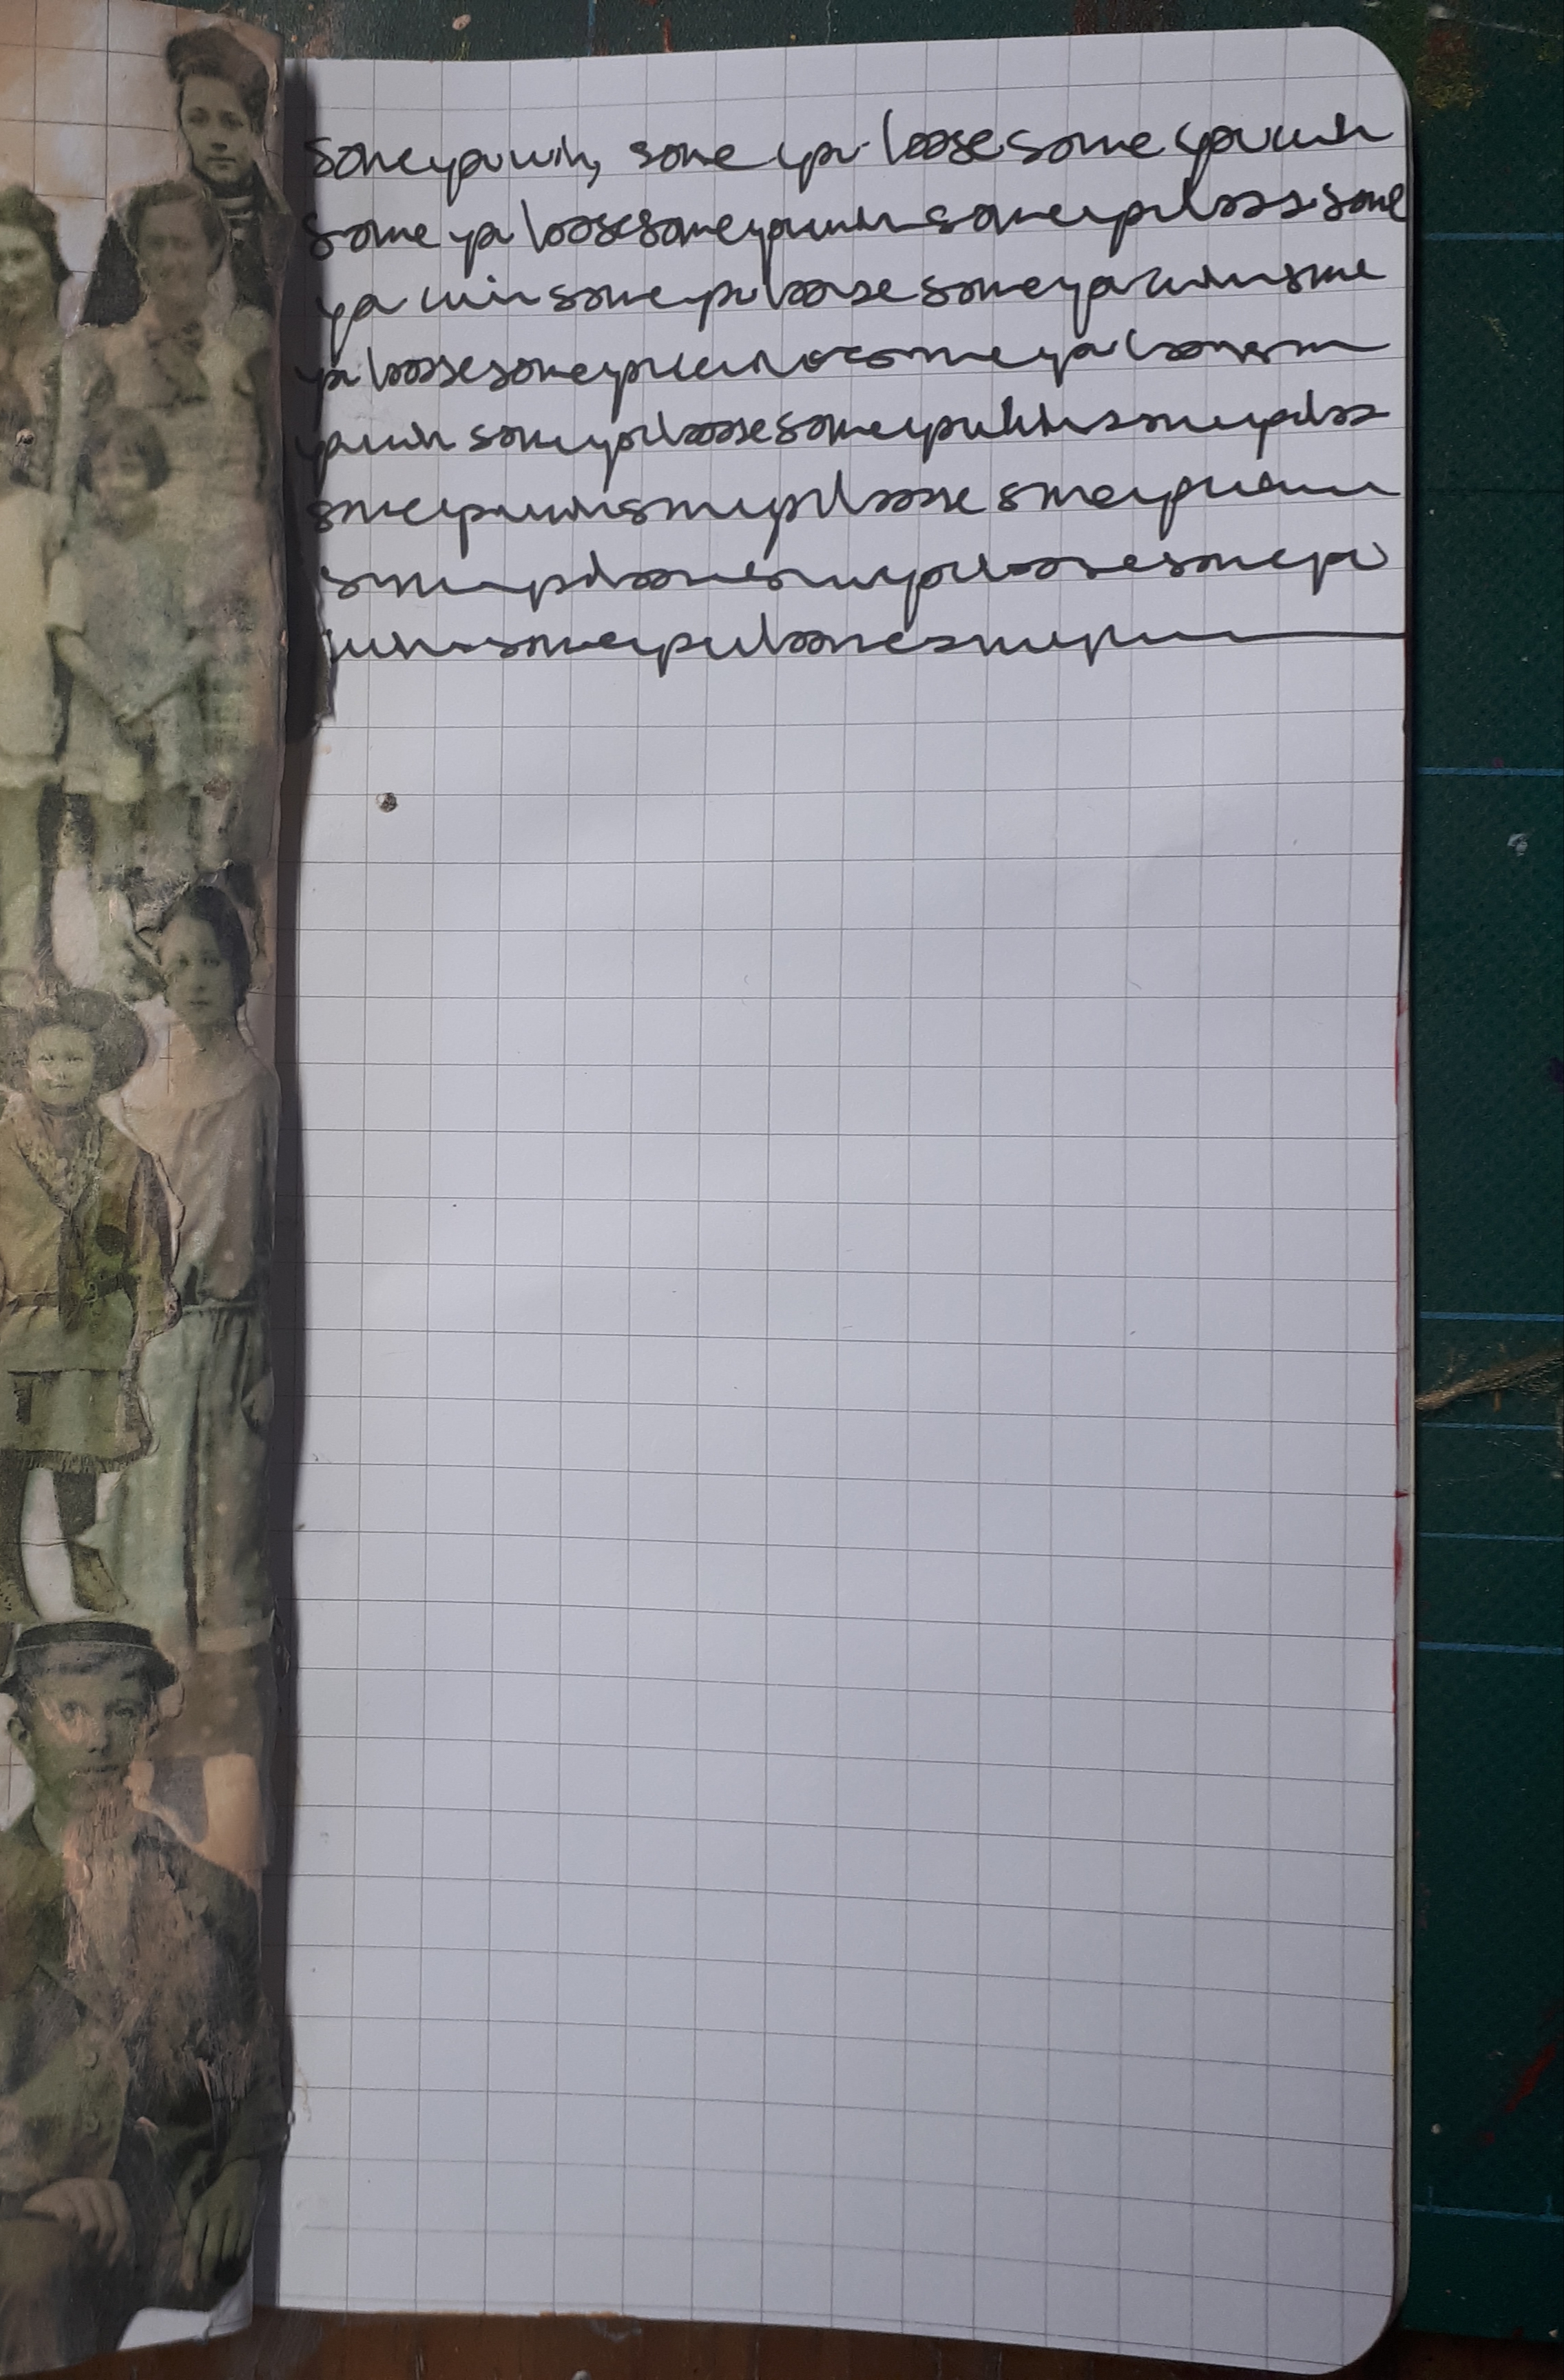 some ya win, some ya loose some ya win
some ya loose some ya win some ya loose some
ya win some ya loose some ya win some
ya loose some ya win some ya loose
ya win some ya loose some ya win some ya loos
some ya win some ya loose some ya
some ya loose some ya loose some ya
win some ya loose some ya